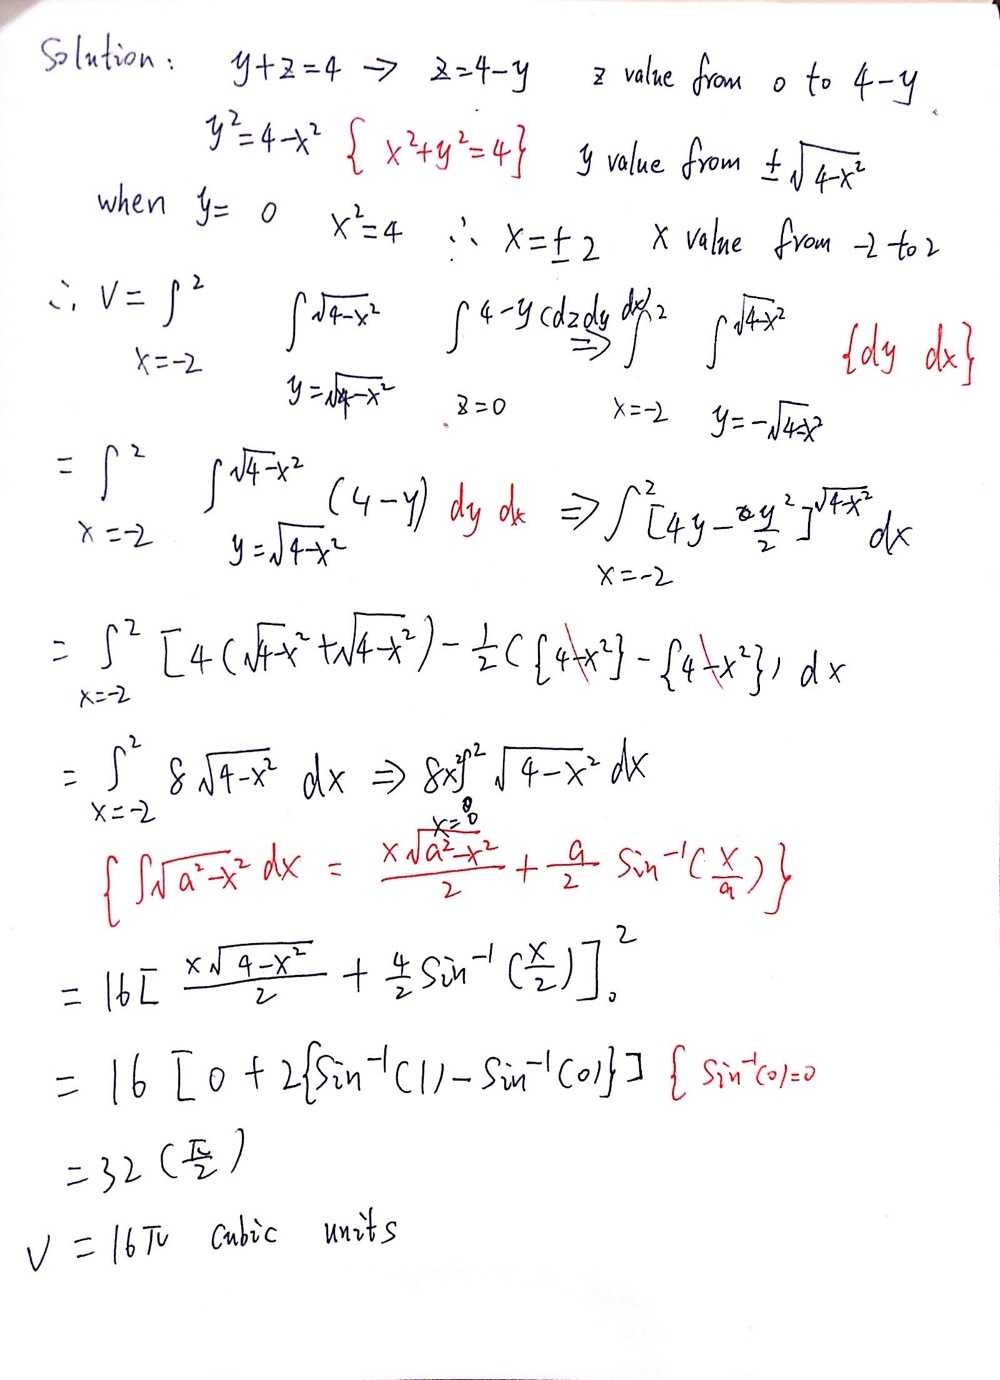 Solution: y+z=4 → z=4-y z value from 0 to 4-y
y²=4-x² { x²+y²=4} y value from ±√4-x²
when y= 0 x²=4 ∴ x=±2 x value from -2 to 2
∴ V= ∫² ∫√4-x² ∫4-y (dzdy dx) ⇒ ∫² ∫√4-x² {dy dx}
x=-2 y=√4-x² z=0 x=-2 y=-√4-x²
= ∫² ∫√4-x² (4-y) dy dx ⇒ ∫²[4y- y²/2]√4-x² dx
x=-2 y=√4-x² x=-2
= ∫² [4(√4-x²+√4-x²)-1/2({4-x²}-{4-x²}) dx
x=-2
= ∫² 8√4-x² dx ⇒ 8x2∫² √4-x² dx
x=-2 x=0
{∫√a²-x² dx = x√a²-x²/2 + a/2 Sin⁻¹(x/a)}
= 16[ x√4-x²/2 + 4/2 Sin⁻¹(x/2)]₀²
= 16 [0+2{Sin⁻¹(1)-Sin⁻¹(0)}] { Sin⁻¹(0)=0
=32(π/2)
V =16π cubic units